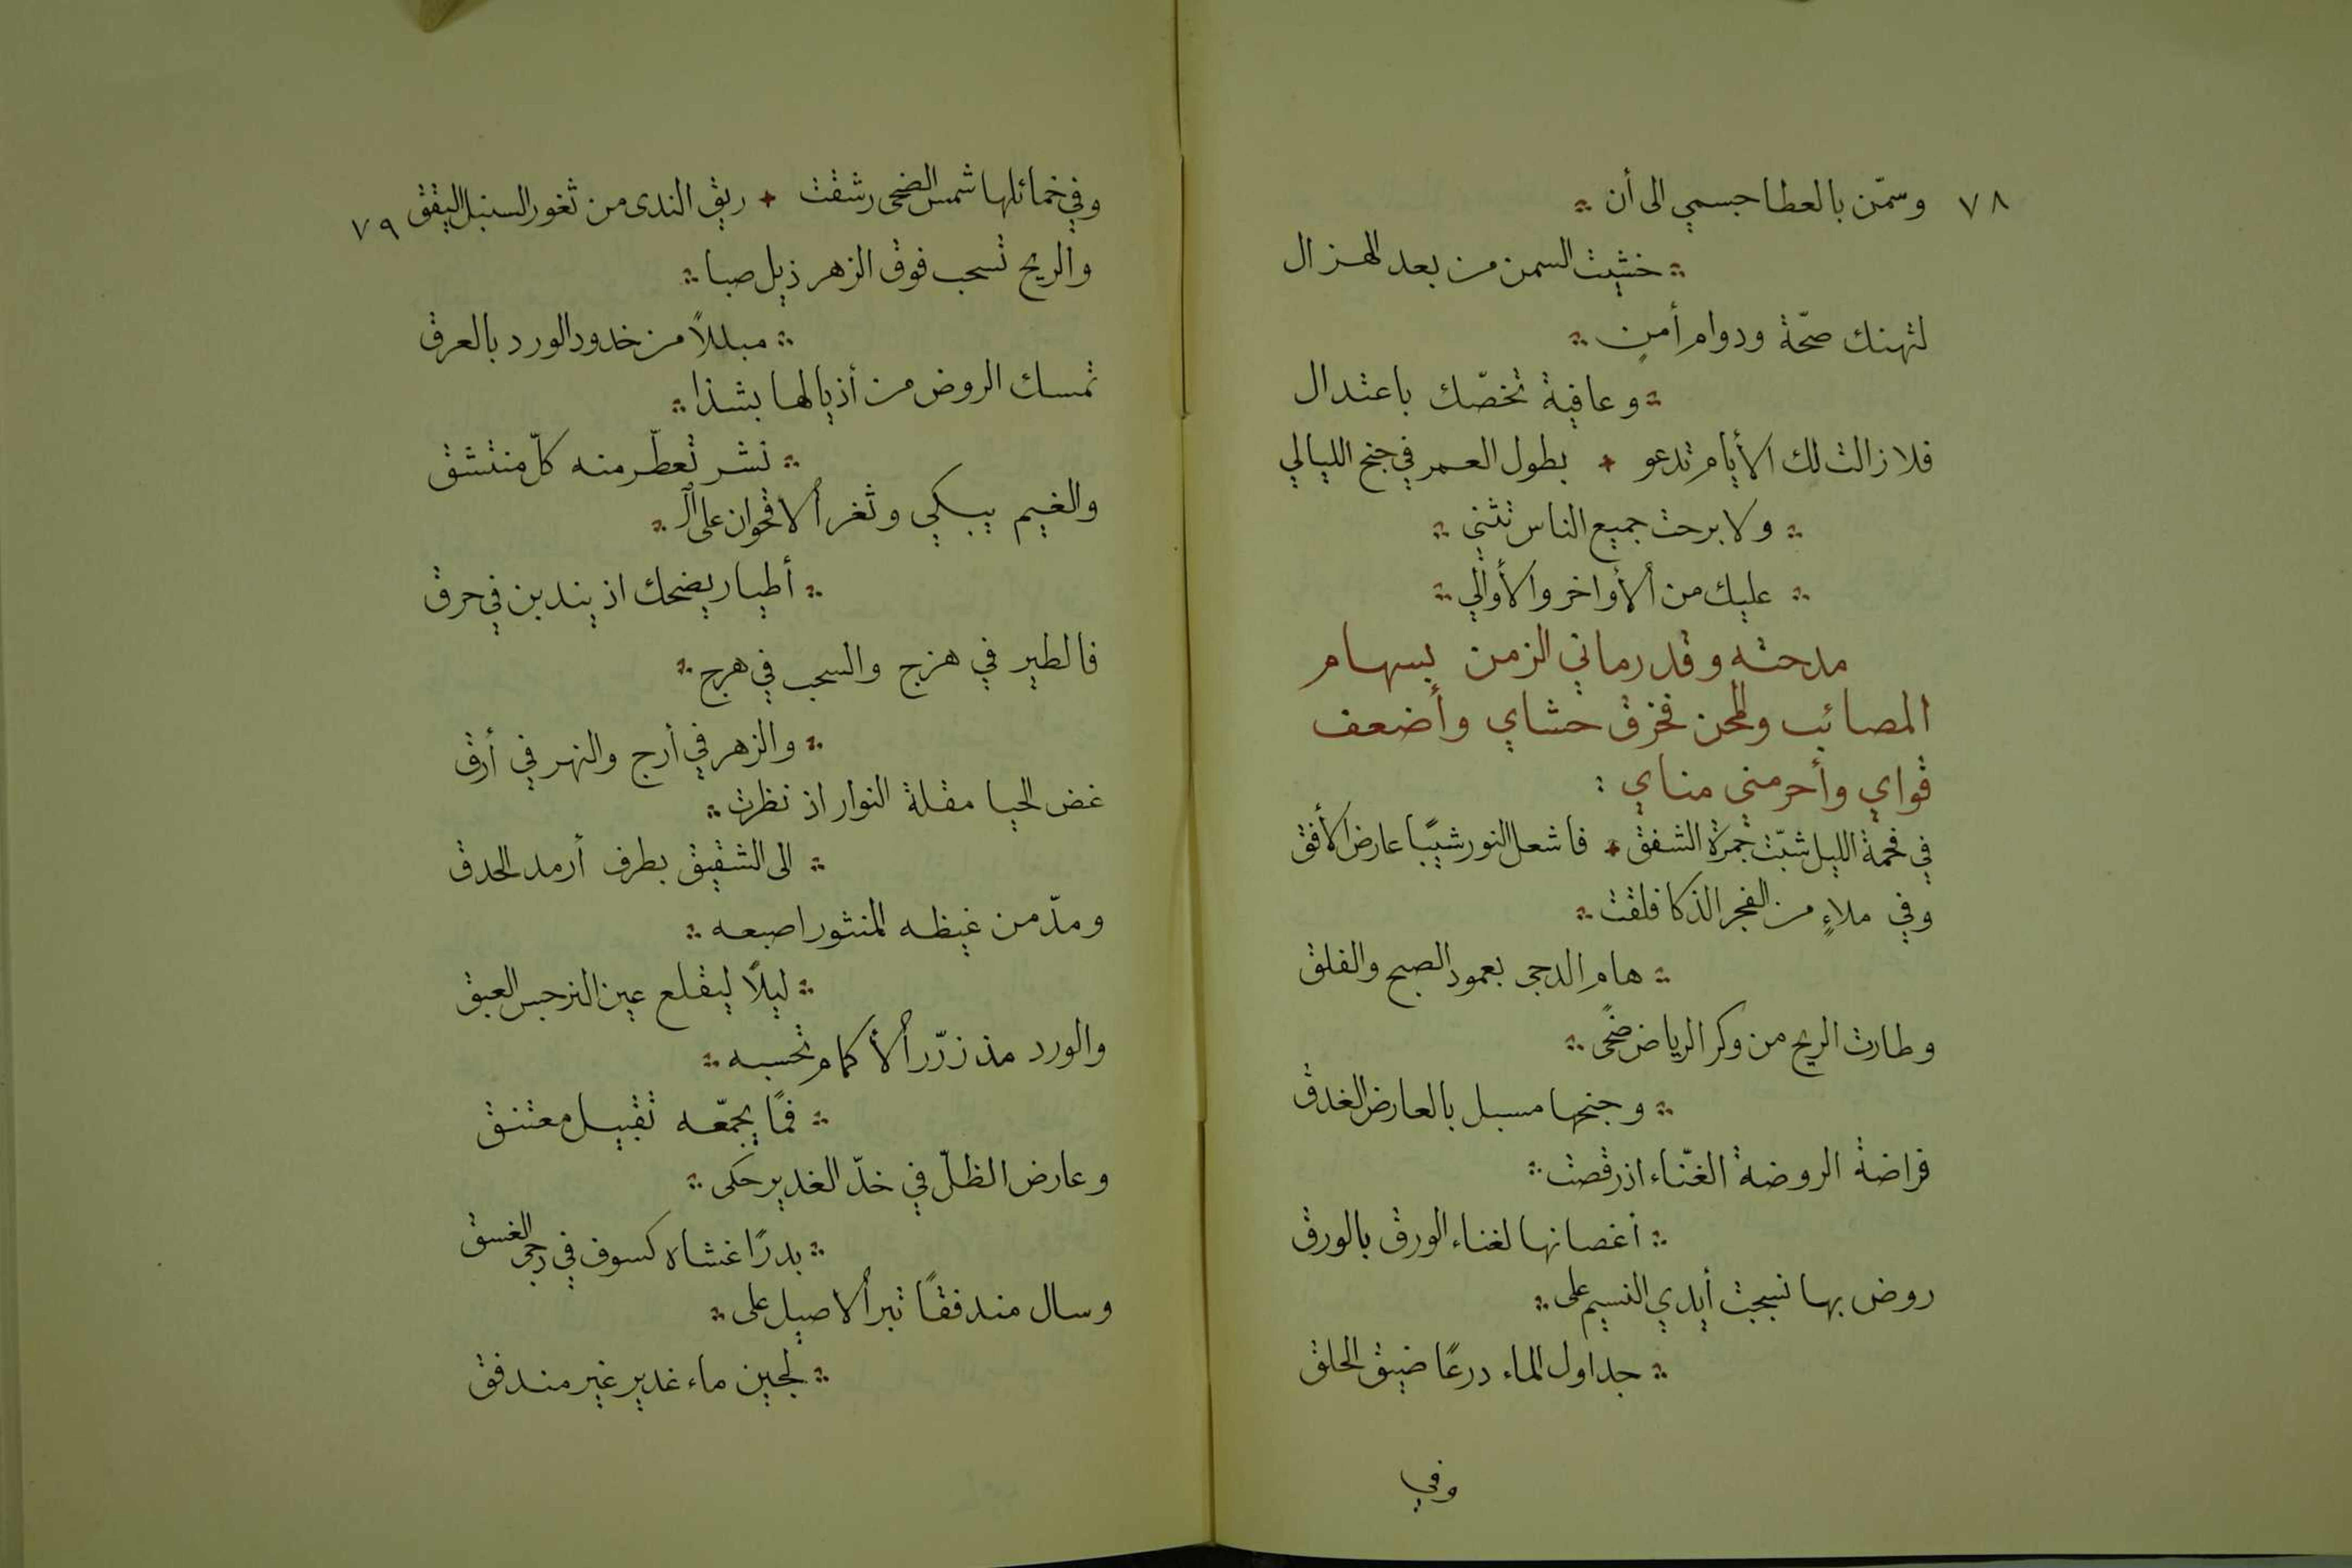 ٧٨ وسمّن بالعطا جسمي الى أن
خشيت السمن من بعد الهزال
لتهنك صحّة ودوام أمنٍ
وعافية تخصّك باعتدال
فلا زالت لك الأيام تدعو + بطول العمر في جنح الليالي
ولا برحت جميع الناس تثني
عليك من الأواخر والأوالي
مدحته وقد رماني الزمن بسهام
المصائب والمحن فخزق حشاي وأضعف
قواي وأحرمني مناي :
في فحمة الليل شبّت جمرة الشفق + فاشعل النور شيبًا عارض الأفق
وفي ملاءٍ من الفجر الذكا فلقت
هام الدجى بعمود الصبح والفلق
وطارت الريح من وكر الرياض ضحًى
وجنحها مسبل بالعارض الغدق
قراضة الروضة الغنّاء اذ رقصت
أغصانها لغناء الورق بالورق
روض بها نسجت أيدي النسيم على
جداول الماء درعًا ضيق الحلق
وفي
وفي خمائلها شمس الضحى رشفت + ريق الندى من ثغور السنبل اليقق ٧٩
والريح تسحب فوق الزهر ذيل صبا
مبللاً من خدود الورد بالعرق
تمسك الروض من أذيالها بشذا
نشر تعطّر منه كلّ منتشق
والغيم يبكي وثغر الاقحوان على الـ
أطيار يضحك اذ يندبن في حرق
فالطير في هزج والسحب في هرج
والزهر في أرج والنهر في أرق
غض الحيا مقلة النوار اذ نظرت
الى الشقيق بطرف أرمد الحدق
ومدّ من غيظه المنثور اصبعه
ليلًا ليقلع عين النرجس العبق
والورد مذ زرّر الأكمام تحسبه
فمًا يجمّعه تقبيل معتنق
وعارض الظلّ في خدّ الغدير حكى
بدرًا غشاه كسوف في دجى الغسق
وسال مندفقًا تبر الاصيل على
لجين ماء غدير غير مندفق